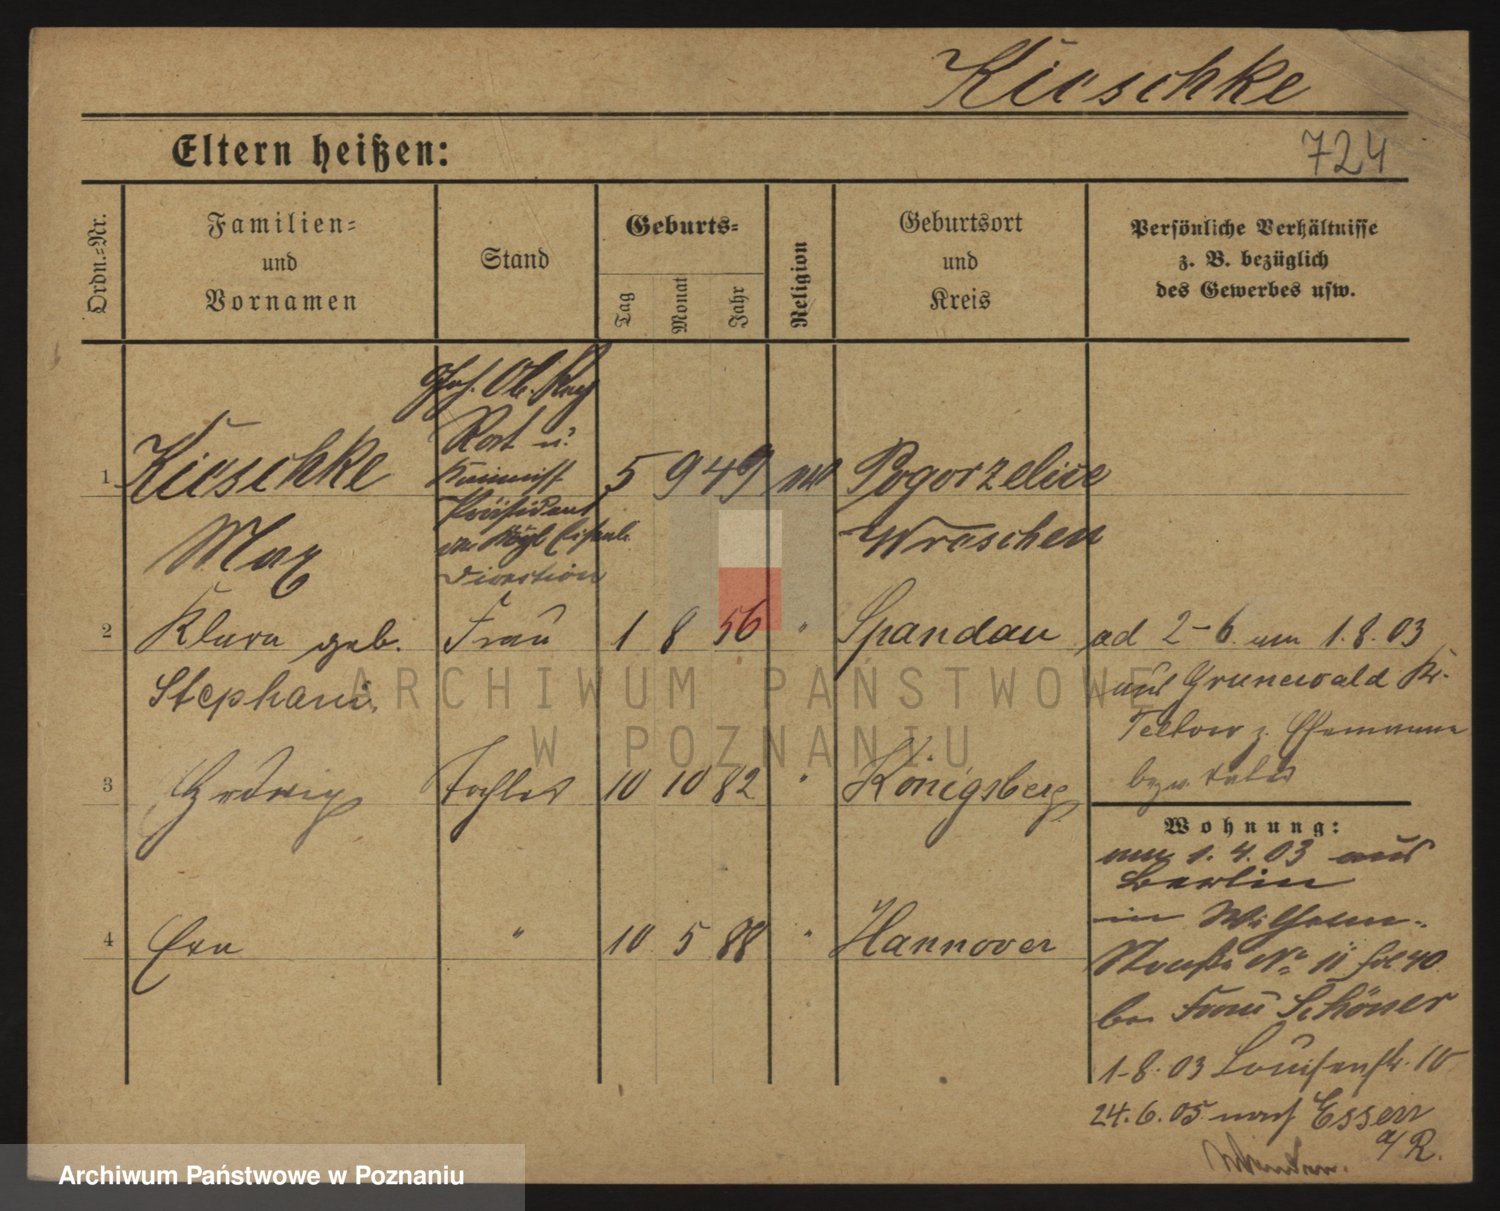 Kieschke
Eltern heißen:
724
Ordn.=Nr.
Familien=
und
Vornamen
Stand
Geburts=
Tag
Monat
Jahr
Religion
Geburtsort
und
Kreis
Persönliche Verhältnisse
z. B. bezüglich
des Gewerbes usw.
Geh. Ob. Reg
Rat u.
Präsident
der Kgl Eisenb.
Direction
1 Kieschke 5 9 49 Pogorzelice
Max Wreschen
2 Klara geb. Frau 1 8 56 " Spandau ad 2-6. am 1.8.03
Stephani, aus Grunewald Kr.
Teltow z. Ehemanne
3 Hedwig Tochter 10 10 82 " Königsberg bezw. Vater
Wohnung:
am 1.4.03 aus
Berlin
4 Eva " 10 5 88 " Hannover
in Wilhelm-
Straße No 11
bei Frau Schöner
1.8.03 Louisenstr. 10
24.6.05 nach Essen
a/R.
ARCHIWUM PAŃSTWOWE
W POZNANIU
Archiwum Państwowe w Poznaniu